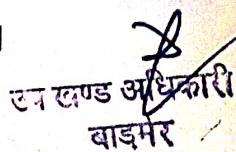 उप खण्ड अधिकारी
बाड़मेर